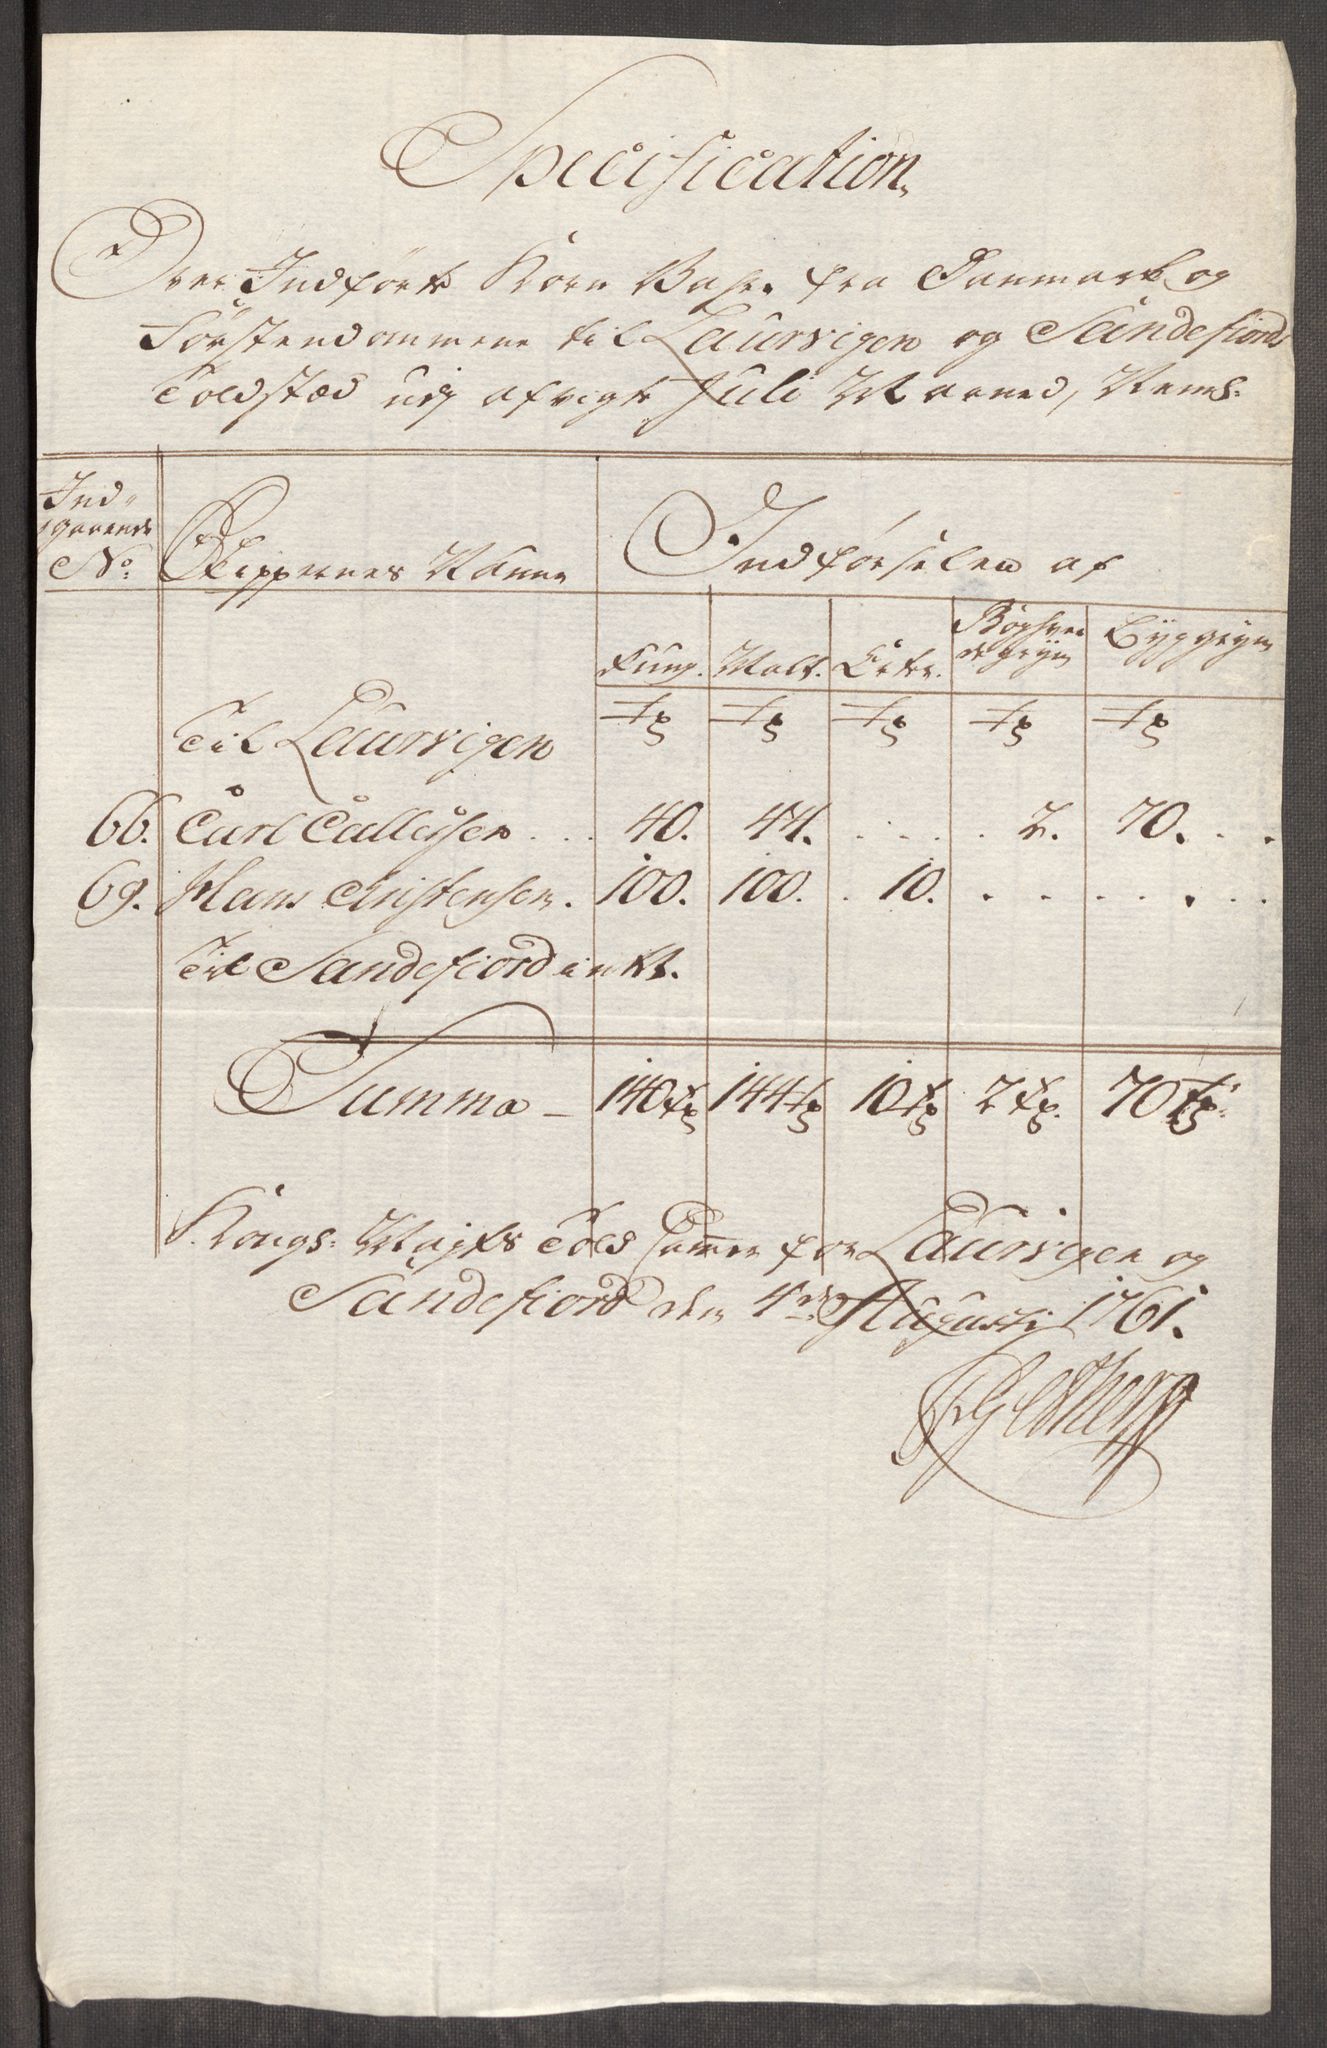 Specification
Over Indført Korn Vahre fra Danmark og
Førstendommene til Laurvigen og Sandefiords
Toldstæd udj afvigte Juli Maaned, Neml:
Ind-
gaaende
No: Skippernes Nafne Indførselen af
Rug. Malt. Erter. Boghve
de gryn Byggryn
Til Laurvigen Tr Tr Tr Tr Tr
66. Carl Callissen . . . 40. 44. . . . . 2. 70. . .
69. Hans Christensen. 100. 100. . 10. . . . . . . . .
Til Sandefiord intet.
Summa - 140 Tr 144 Tr 10 Tr 2 Tr. 70 Tr.
Kongs: Mayts Told Cammer for Laurvigen og
Sandefiord den 4de Augusti 1761.